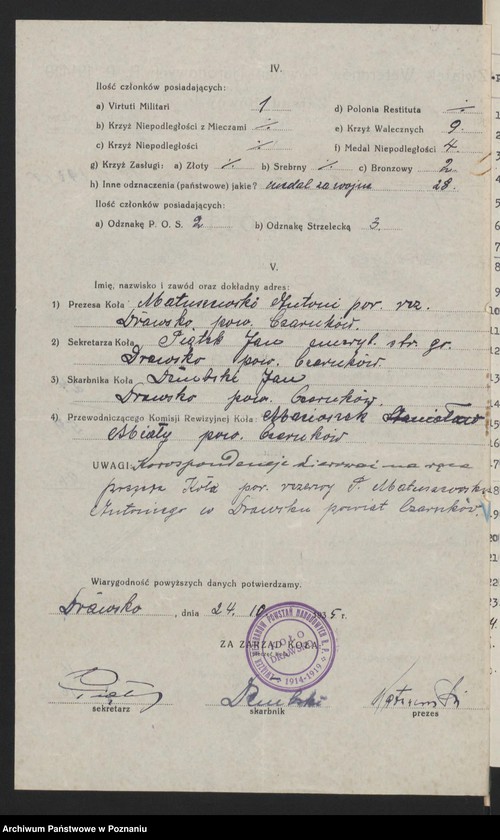 IV.
Ilość członków posiadających:
a) Virtuti Militari 1 d) Polonia Restituta ·/·
b) Krzyż Niepodległości z Mieczami ·/· e) Krzyż Walecznych 9
c) Krzyż Niepodległości ·/· f) Medal Niepodległości 4
g) Krzyż Zasługi: a) Złoty ·/· b) Srebrny ·/· c) Bronzowy 2
h) Inne odznaczenia (państwowe) jakie? medal za wojnę 28.
Ilość członków posiadających:
a) Odznakę P. O. S. 2 b) Odznakę Strzelecką 3.
V.
Imię, nazwisko i zawód oraz dokładny adres:
1) Prezesa Koła Matuszewski Antoni por. rez.
Drawsko pow. Czarnków.
2) Sekretarza Koła Piątek Jan emeryt. str. gr.
Drawsko pow. Czarnków.
3) Skarbnika Koła Dembski Jan
Drawsko pow. Czarnków.
4) Przewodniczącego Komisji Rewizyjnej Koła: Stanisław
Miały pow. Czarnków
UWAGI: Korespondencję kierować na ręce
prezesa Koła por. rezerwy P. Matuszewski
Antoniego w Drawsku powiat Czarnków.
Wiarygodność powyższych danych potwierdzamy.
Drawsko, dnia 24. 10 1935 r.
ZA ZARZĄD KOŁA
KOŁO
DRAWSKO
1914-1919
Piątek Dembski
sekretarz skarbnik prezes
Archiwum Państwowe w Poznaniu